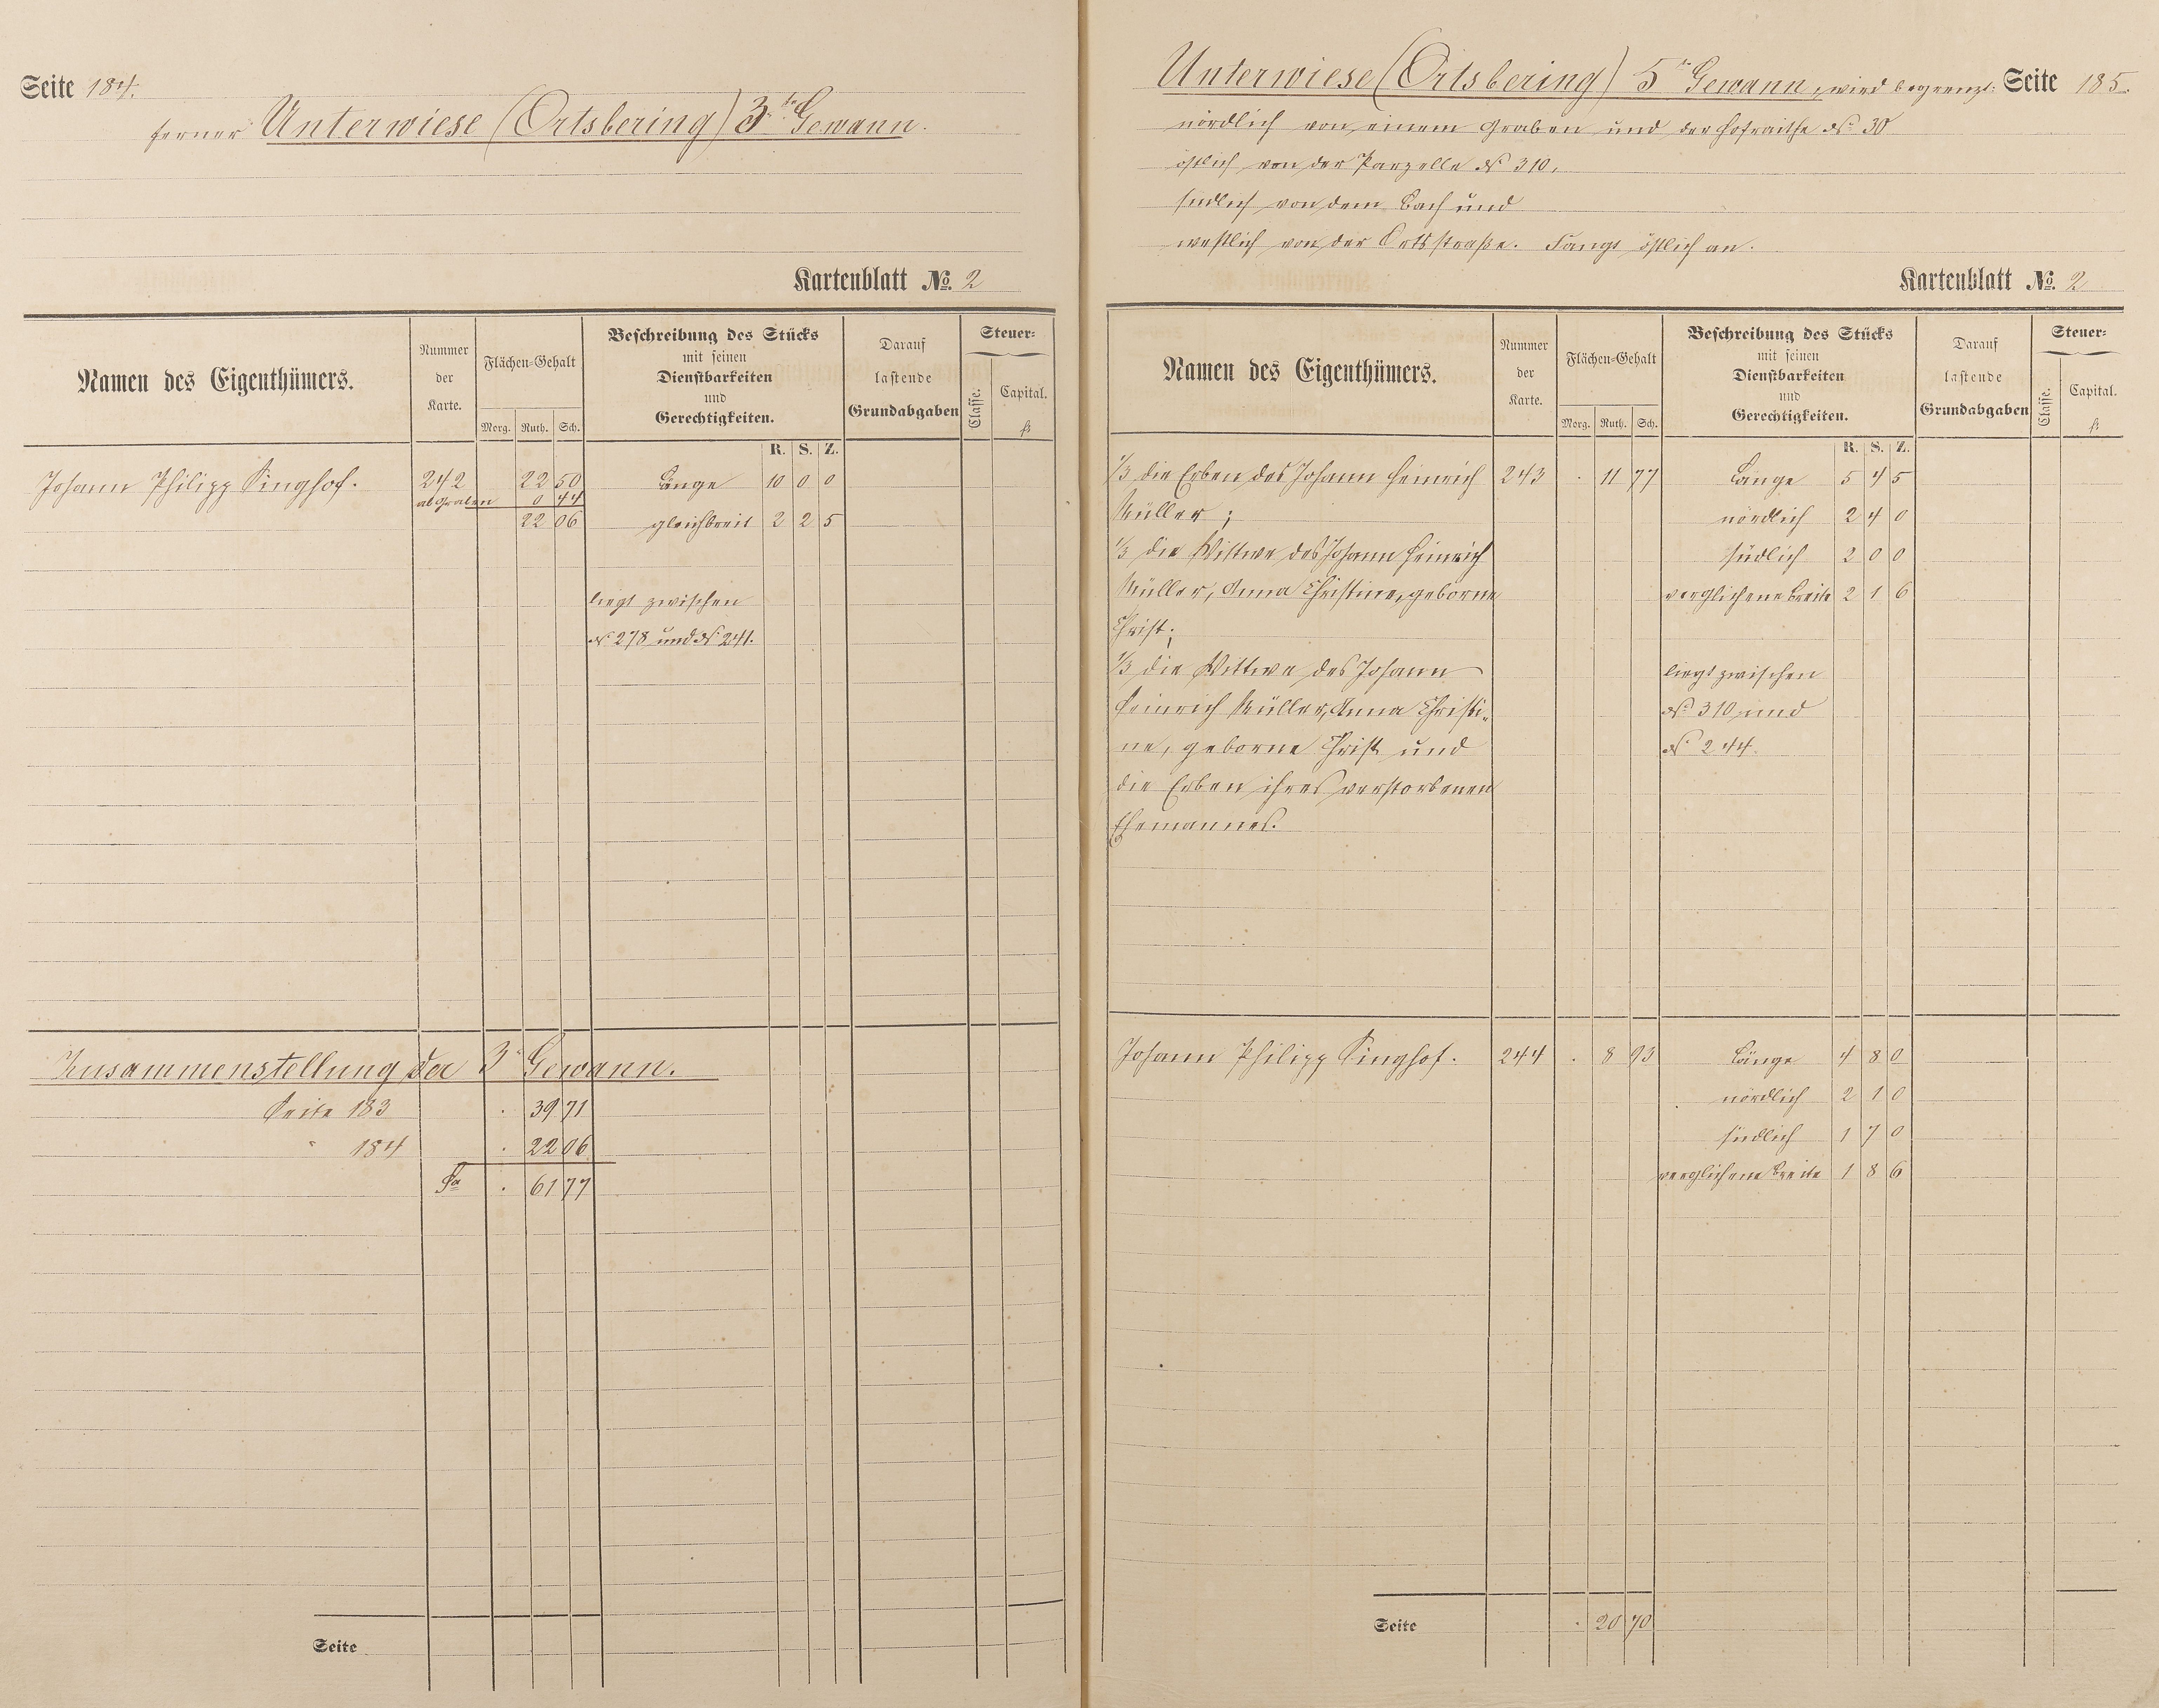 Seite 184.
ferner Unterwiese (Ortsbering) 3te Gewann.
Kartenblatt No. 2
Namen des Eigenthümers.
Nummer der Karte.
Flächen-Gehalt
Morg. Ruth. Sch.
Beschreibung des Stücks
mit seinen
Dienstbarkeiten
und
Gerechtigkeiten.
Darauf
lastende
Grundabgaben
Steuer-
Classe.
Capital.
fl
R. S. Z.
Johann Philipp Singhof. 242 22 50 Länge 10 0 0
ab Graben 0 44
22 06 gleichbreit 2 2 5
liegt zwischen
No 278 und No 241.
Zusammenstellung der 3t Gewann.
Seite 183 . 39 71
" 184 . 22 06
Sa . 61 77
Seite
Unterwiese (Ortsbering) 5te Gewann, wird begrenzt: Seite 185.
nördlich von einem Graben und der Hofraithe No 30
östlich von der Parzelle No 310,
südlich von dem Bach und
westlich von der Ortsstraße. Fängt östlich an.
Kartenblatt No. 2
Namen des Eigenthümers.
Nummer der Karte.
Flächen-Gehalt
Morg. Ruth. Sch.
Beschreibung des Stücks
mit seinen
Dienstbarkeiten
und
Gerechtigkeiten.
Darauf
lastende
Grundabgaben
Steuer-
Classe.
Capital.
fl
R. S. Z.
1/3 die Erben des Johann Heinrich 243 . 11 77 Länge 5 4 5
Müller; nördlich 2 4 0
1/3 die Wittwe des Johann Heinrich südlich 2 0 0
Müller, Anna Christine, geborne verglichene Breite 2 1 6
Christ;
1/3 die Wittwe des Johann liegt zwischen
Heinrich Müller, Anna Christi- No 310 und
ne, geborne Christ und No 244.
die Erben ihres verstorbenen
Ehemannes.
Johann Philipp Singhof. 244 . 8 93 Länge 4 8 0
nördlich 2 1 0
südlich 1 7 0
verglichene Breite 1 8 6
Seite . 20 70